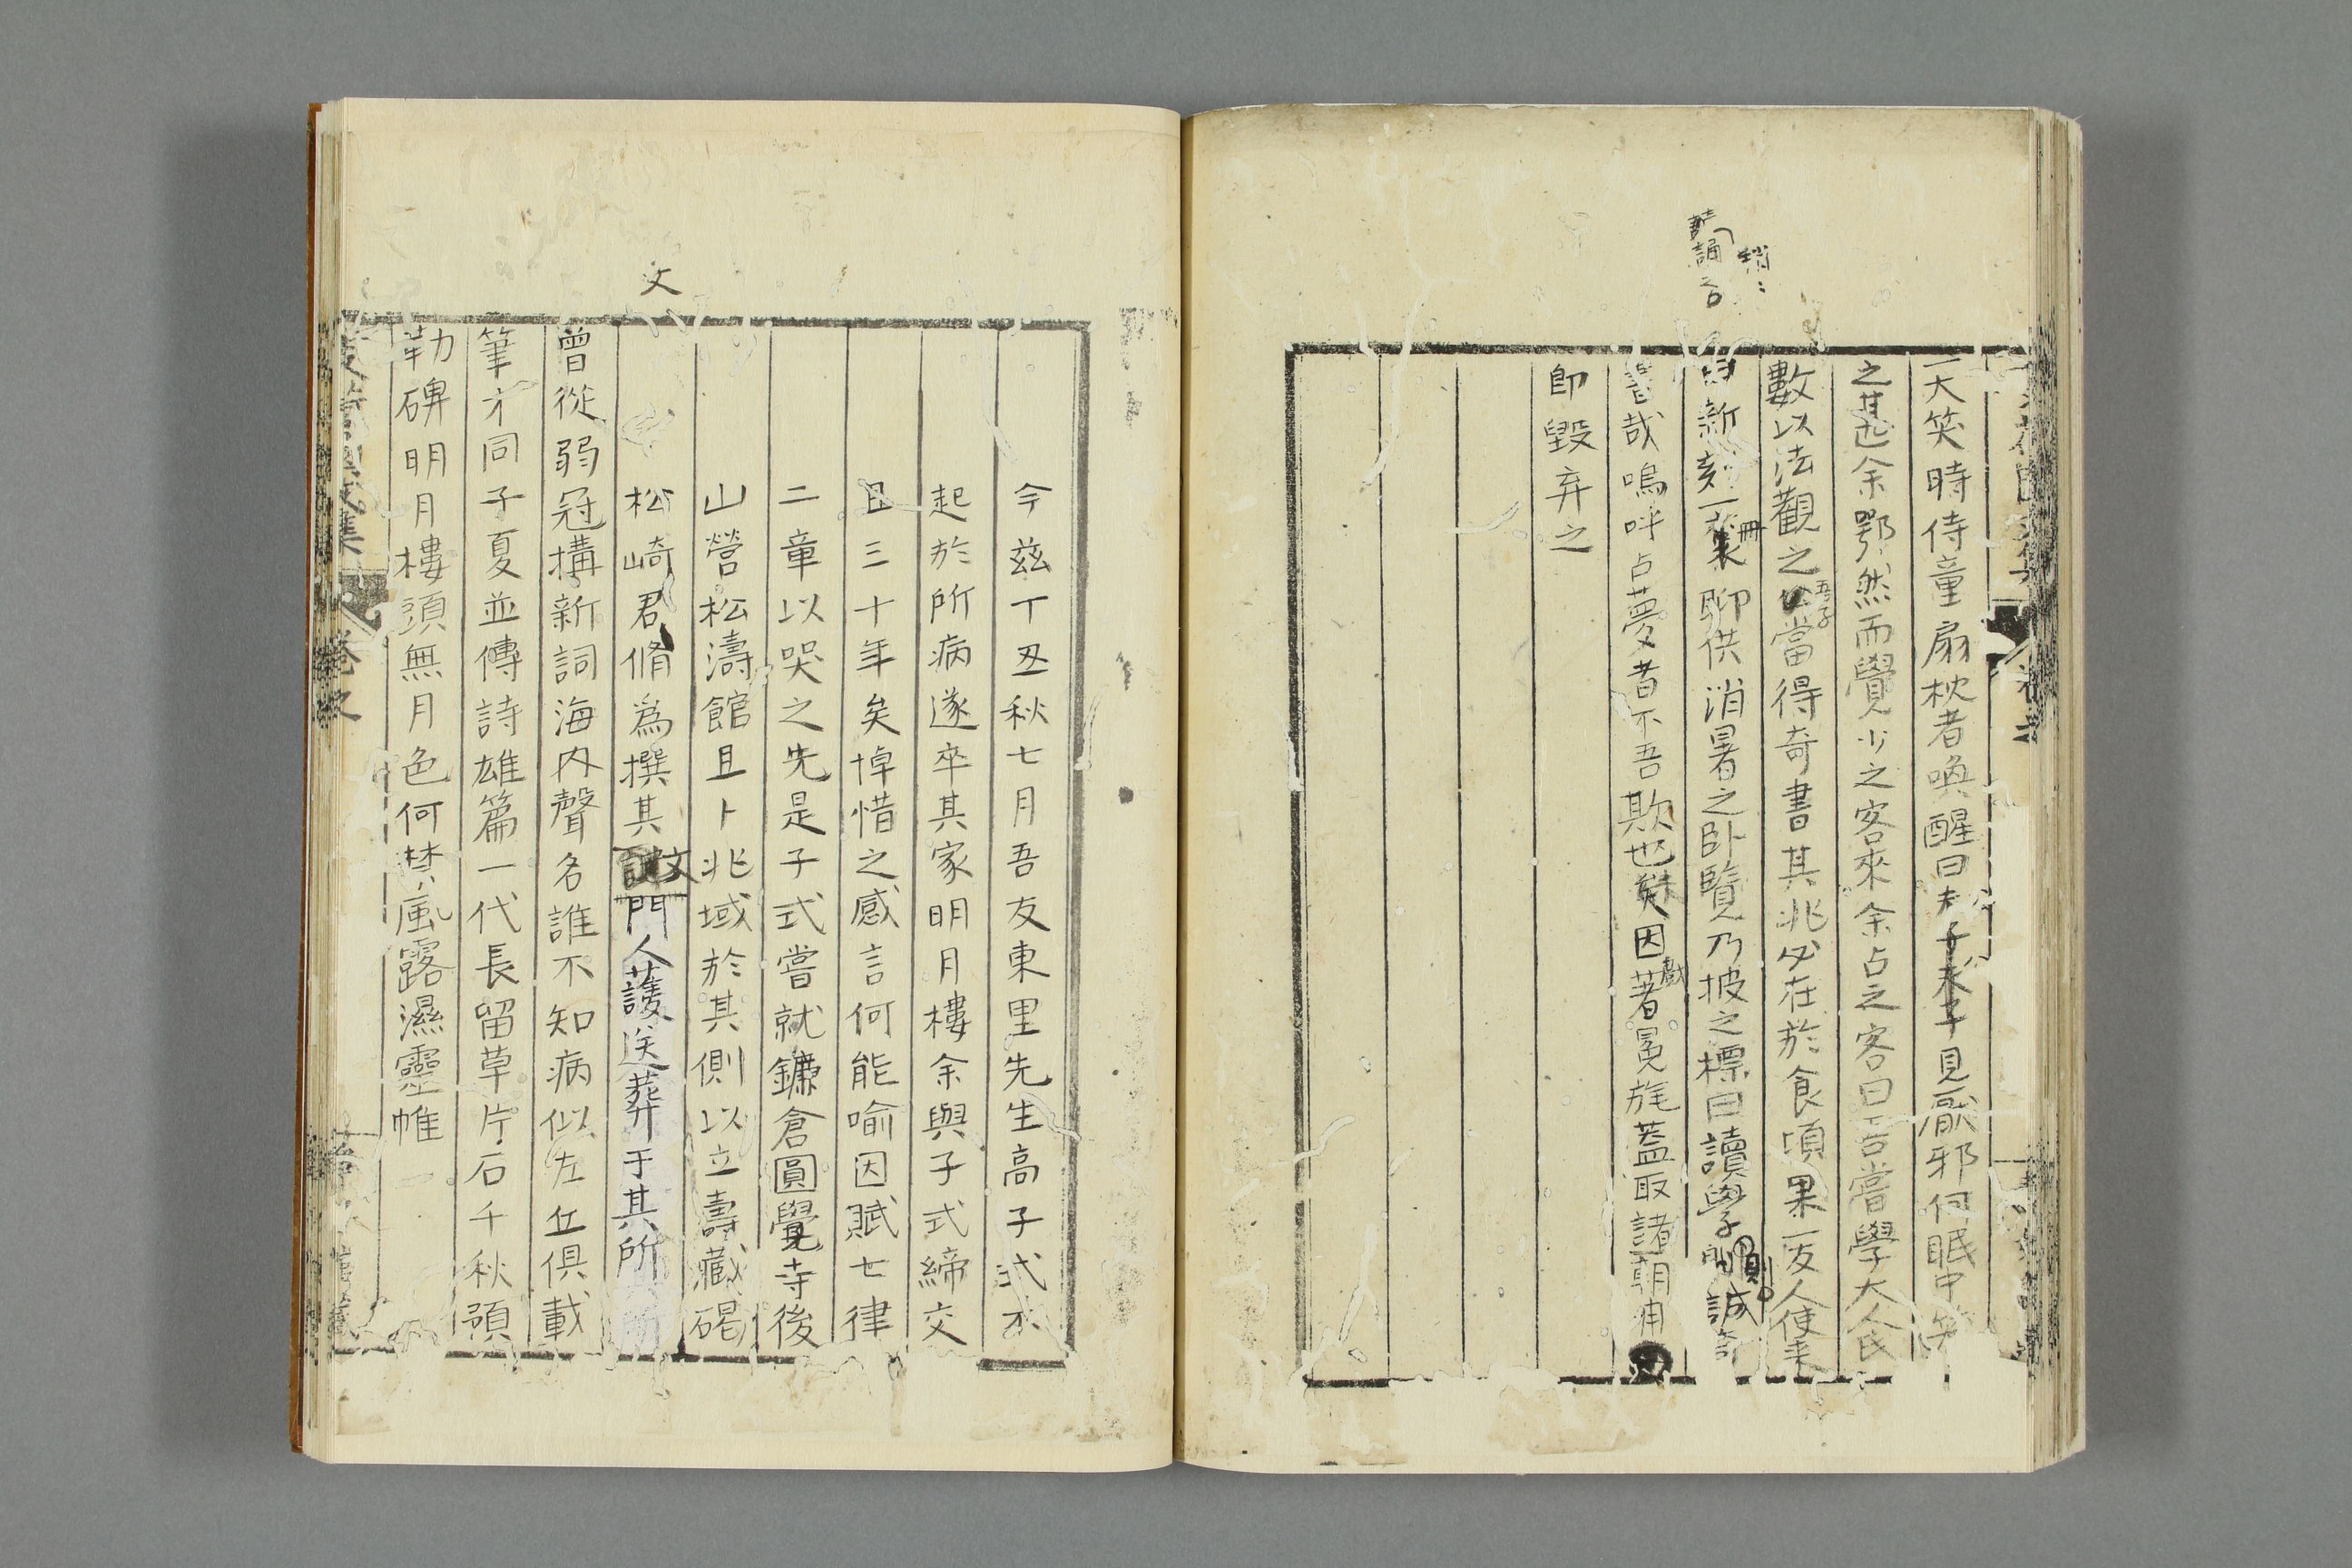 一大笑時侍童扇枕者喚醒曰夫子夫子見厭邪何眠中笑
之甚也余鄂然而覺少之客來余占之客曰吾嘗學大人氏
數以法觀之吾子當得奇書其兆必在於食頃果一友人使來
新刻一冊聊供消暑之臥覽乃披之標曰讀學則誠
哉嗚呼占夢者不吾欺也因戲著冕旄蓋取諸朝
即毀弃之
文
今茲丁丑秋七月吾友東里先生高子式不
起於所病遂卒其家明月樓余與子式締交
且三十年矣悼惜之感言何能喻因賦七律
二章以哭之先是子式嘗就鎌倉圓覺寺後
山營松濤館且卜兆域於其側以立壽藏碣
松崎君脩爲撰其文門人護送葬于其所
曾從弱冠搆新詞海內聲名誰不知病似左丘俱載
筆才同子夏並傳詩雄篇一代長留草片石千秋須
勒碑明月樓頭無月色何禁風露濕靈帷